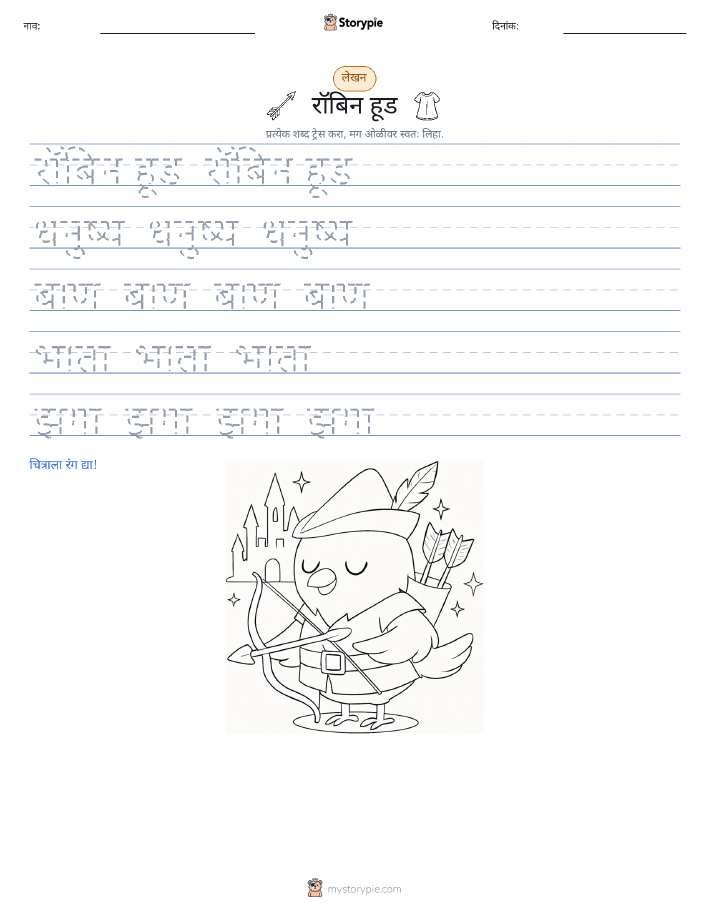 नाव:
Storypie
दिनांक:
लेखन
रॉबिन हूड
प्रत्येक शब्द ट्रेस करा, मग ओळीवर स्वतः लिहा.
रॉबिन हूड रॉबिन हूड
धनुष्य धनुष्य धनुष्य
बाण बाण बाण बाण
भाता भाता भाता
झगा झगा झगा झगा
चित्राला रंग द्या!
mystorypie.com